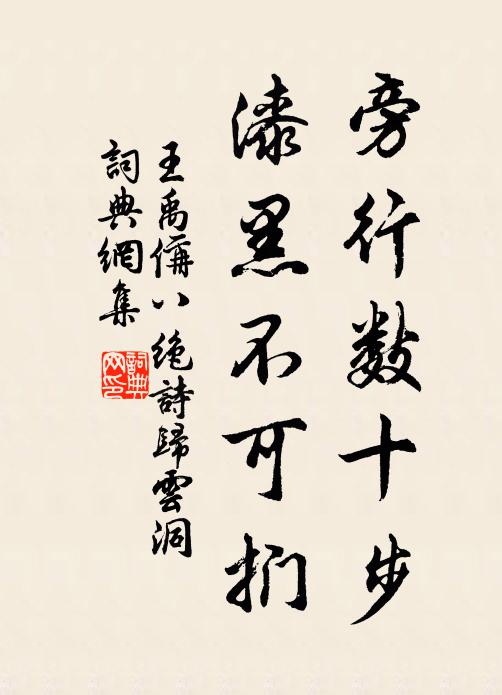 旁行数十步
漆黑不可捫
王禹偁八絶詩歸雲洞
詞典網集
詞典
网印